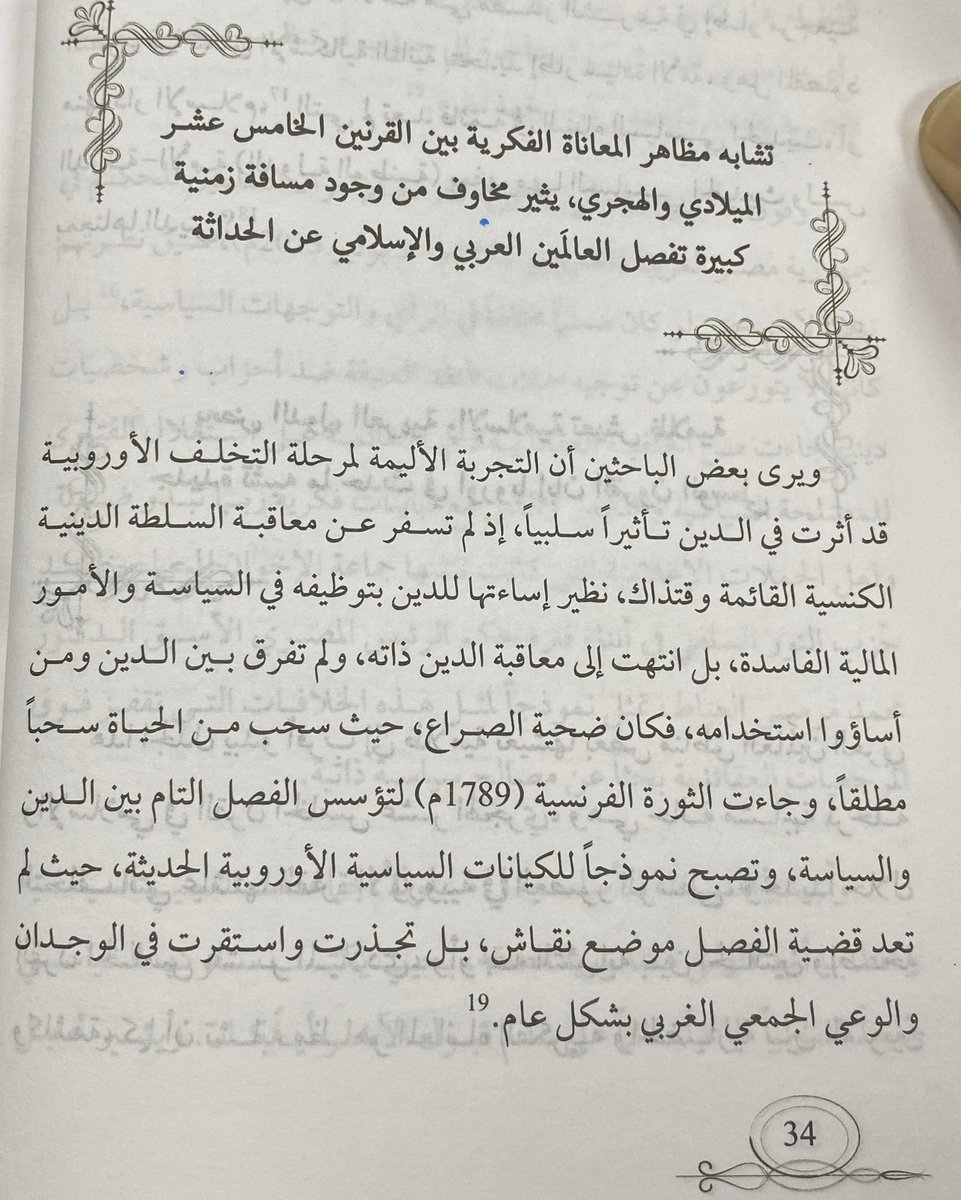 تشابه مظاهر المعاناة الفكرية بين القرنين الخامس عشر
الميلادي والهجري، يثير مخاوف من وجود مسافة زمنية
كبيرة تفصل العالَمين العربي والإسلامي عن الحداثة
ويرى بعض الباحثين أن التجربة الأليمة لمرحلة التخلف الأوروبية
قد أثرت في الدين تأثيراً سلبياً، إذ لم تسفر عن معاقبة السلطة الدينية
الكنسية القائمة وقتذاك، نظير إساءتها للدين بتوظيفه في السياسة والأمور
المالية الفاسدة، بل انتهت إلى معاقبة الدين ذاته، ولم تفرق بين الدين ومن
أساؤوا استخدامه، فكان ضحية الصراع، حيث سحب من الحياة سحباً
مطلقاً، وجاءت الثورة الفرنسية (1789م) لتؤسس الفصل التام بين الدين
والسياسة، وتصبح نموذجاً للكيانات السياسية الأوروبية الحديثة، حيث لم
تعد قضية الفصل موضع نقاش، بل تجذرت واستقرت في الوجدان
والوعي الجمعي الغربي بشكل عام.19
34